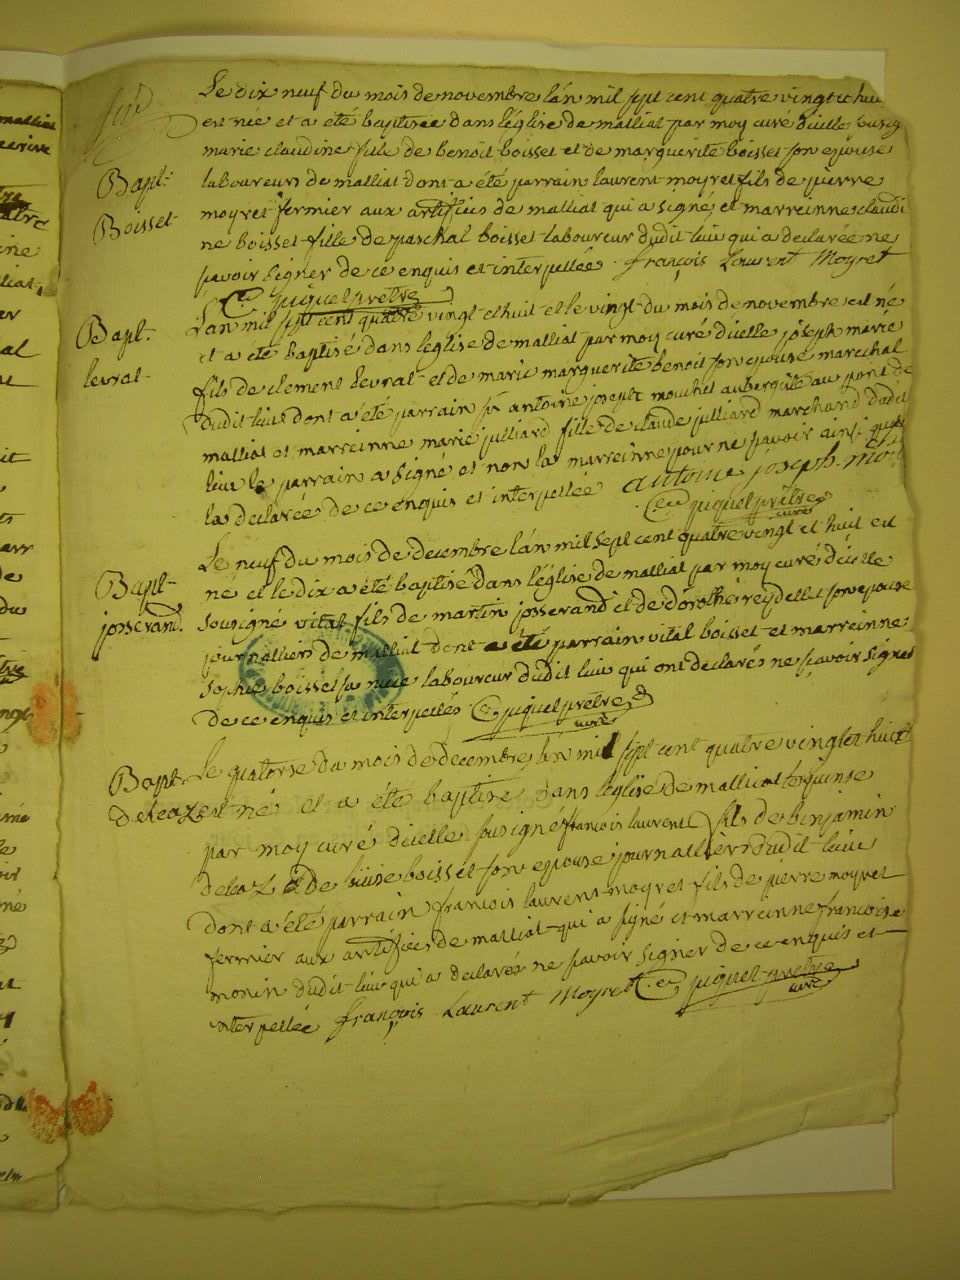 Le dix neuf du mois de novembre l'an mil sept cent quatre vingt et hui
est nee et a été baptisee dans l'église de malliat par moy curé d'icelle sousig
marie claudine fille de benoit boisset et de marguerite boisset son epouse
Bapt.
Boisset
laboureurs de malliat dont a été parrain laurent moyret fils de pierre
moyret fermier aux artifices de malliat qui a signé, et marreinne claudi
ne boisset fille de paschal boisset laboureur dudit lieu qui a declarée ne
scavoir signer de ce enquis et interpellée. françois Laurent Moyret
C. juquel prêtre
Bapt.
levrat.
L'an mil sept cent quatre vingt et huit et le vingt du mois de novembre est né
et a été baptisé dans l'eglise de malliat par moy curé d'icelle joseph marie
fils de clement Levrat et de marie marguerite benoit son epouse marechal
dudit lieu dont a été parrain sr antoine joseph mouchet aubergiste au pont de
malliat et marreinne marie julliard fille de claude julliard marchand dudit
lieu le parrain a signé et non la marreinne pour ne scavoir ainsi qu'
la declarée de ce enquis et interpellée antoine joseph
juquel prêtre
curé
Bapt.
josserand.
Le neuf du mois de decembre l'an mil sept cent quatre vingt et huit est
né et le dix a été baptisé dans l'église de malliat par moy curé d'icelle
sousigné vital fils de martin josserand et de dorothé reydellet son epouse
journalliers de malliat dont a été parrain vital boisset et marreinne
sophie boisset sa niece laboureur dudit lieu qui ont declarés ne scavoir signer
de ce enquis et interpellés. juquel prêtre
curé
Bapt.
deleaz
Le quatorse du mois de decembre l'an mil sept cent quatre vingt et huit
est né et a été baptisé dans l'église de malliat
par moy curé d'icelle sousigné françois laurent fils de binjamin
deleaz et de boisset son epouse journalliers dudit lieu
dont a été parrain francois laurent moyret fils de pierre moyret
fermier aux artifices de malliat qui a signé et marreinne francoise
monin dudit lieu qui a declarés ne scavoir signer de ce enquis et
interpellée françois Laurent Moyret. juquel prêtre
curé